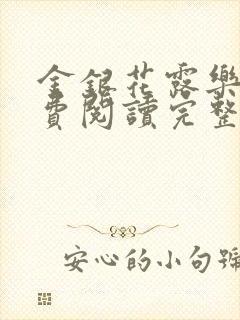 金銀花露樂
費閱讀完整
安心的小句號